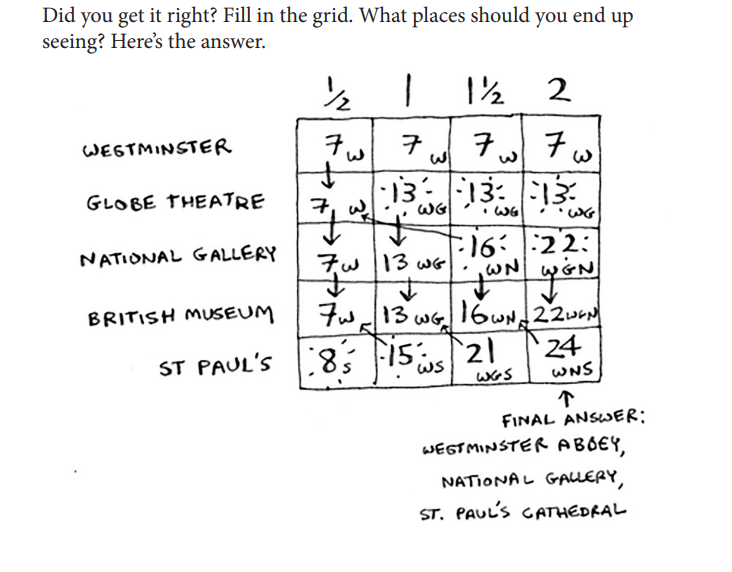 Did you get it right? Fill in the grid. What places should you end up
seeing? Here's the answer.
½ 1 1½ 2
WESTMINSTER 7 W 7 W 7 W 7 W
GLOBE THEATRE 7 W 13 WG 13 WG 13 WG
NATIONAL GALLERY 7 W 13 WG 16 WN 22 WGN
BRITISH MUSEUM 7 W 13 WG 16 WN 22 WGN
ST PAUL'S 8 S 15 WS 21 WGS 24 WNS
FINAL ANSWER:
WESTMINSTER ABBEY,
NATIONAL GALLERY,
ST. PAUL'S CATHEDRAL